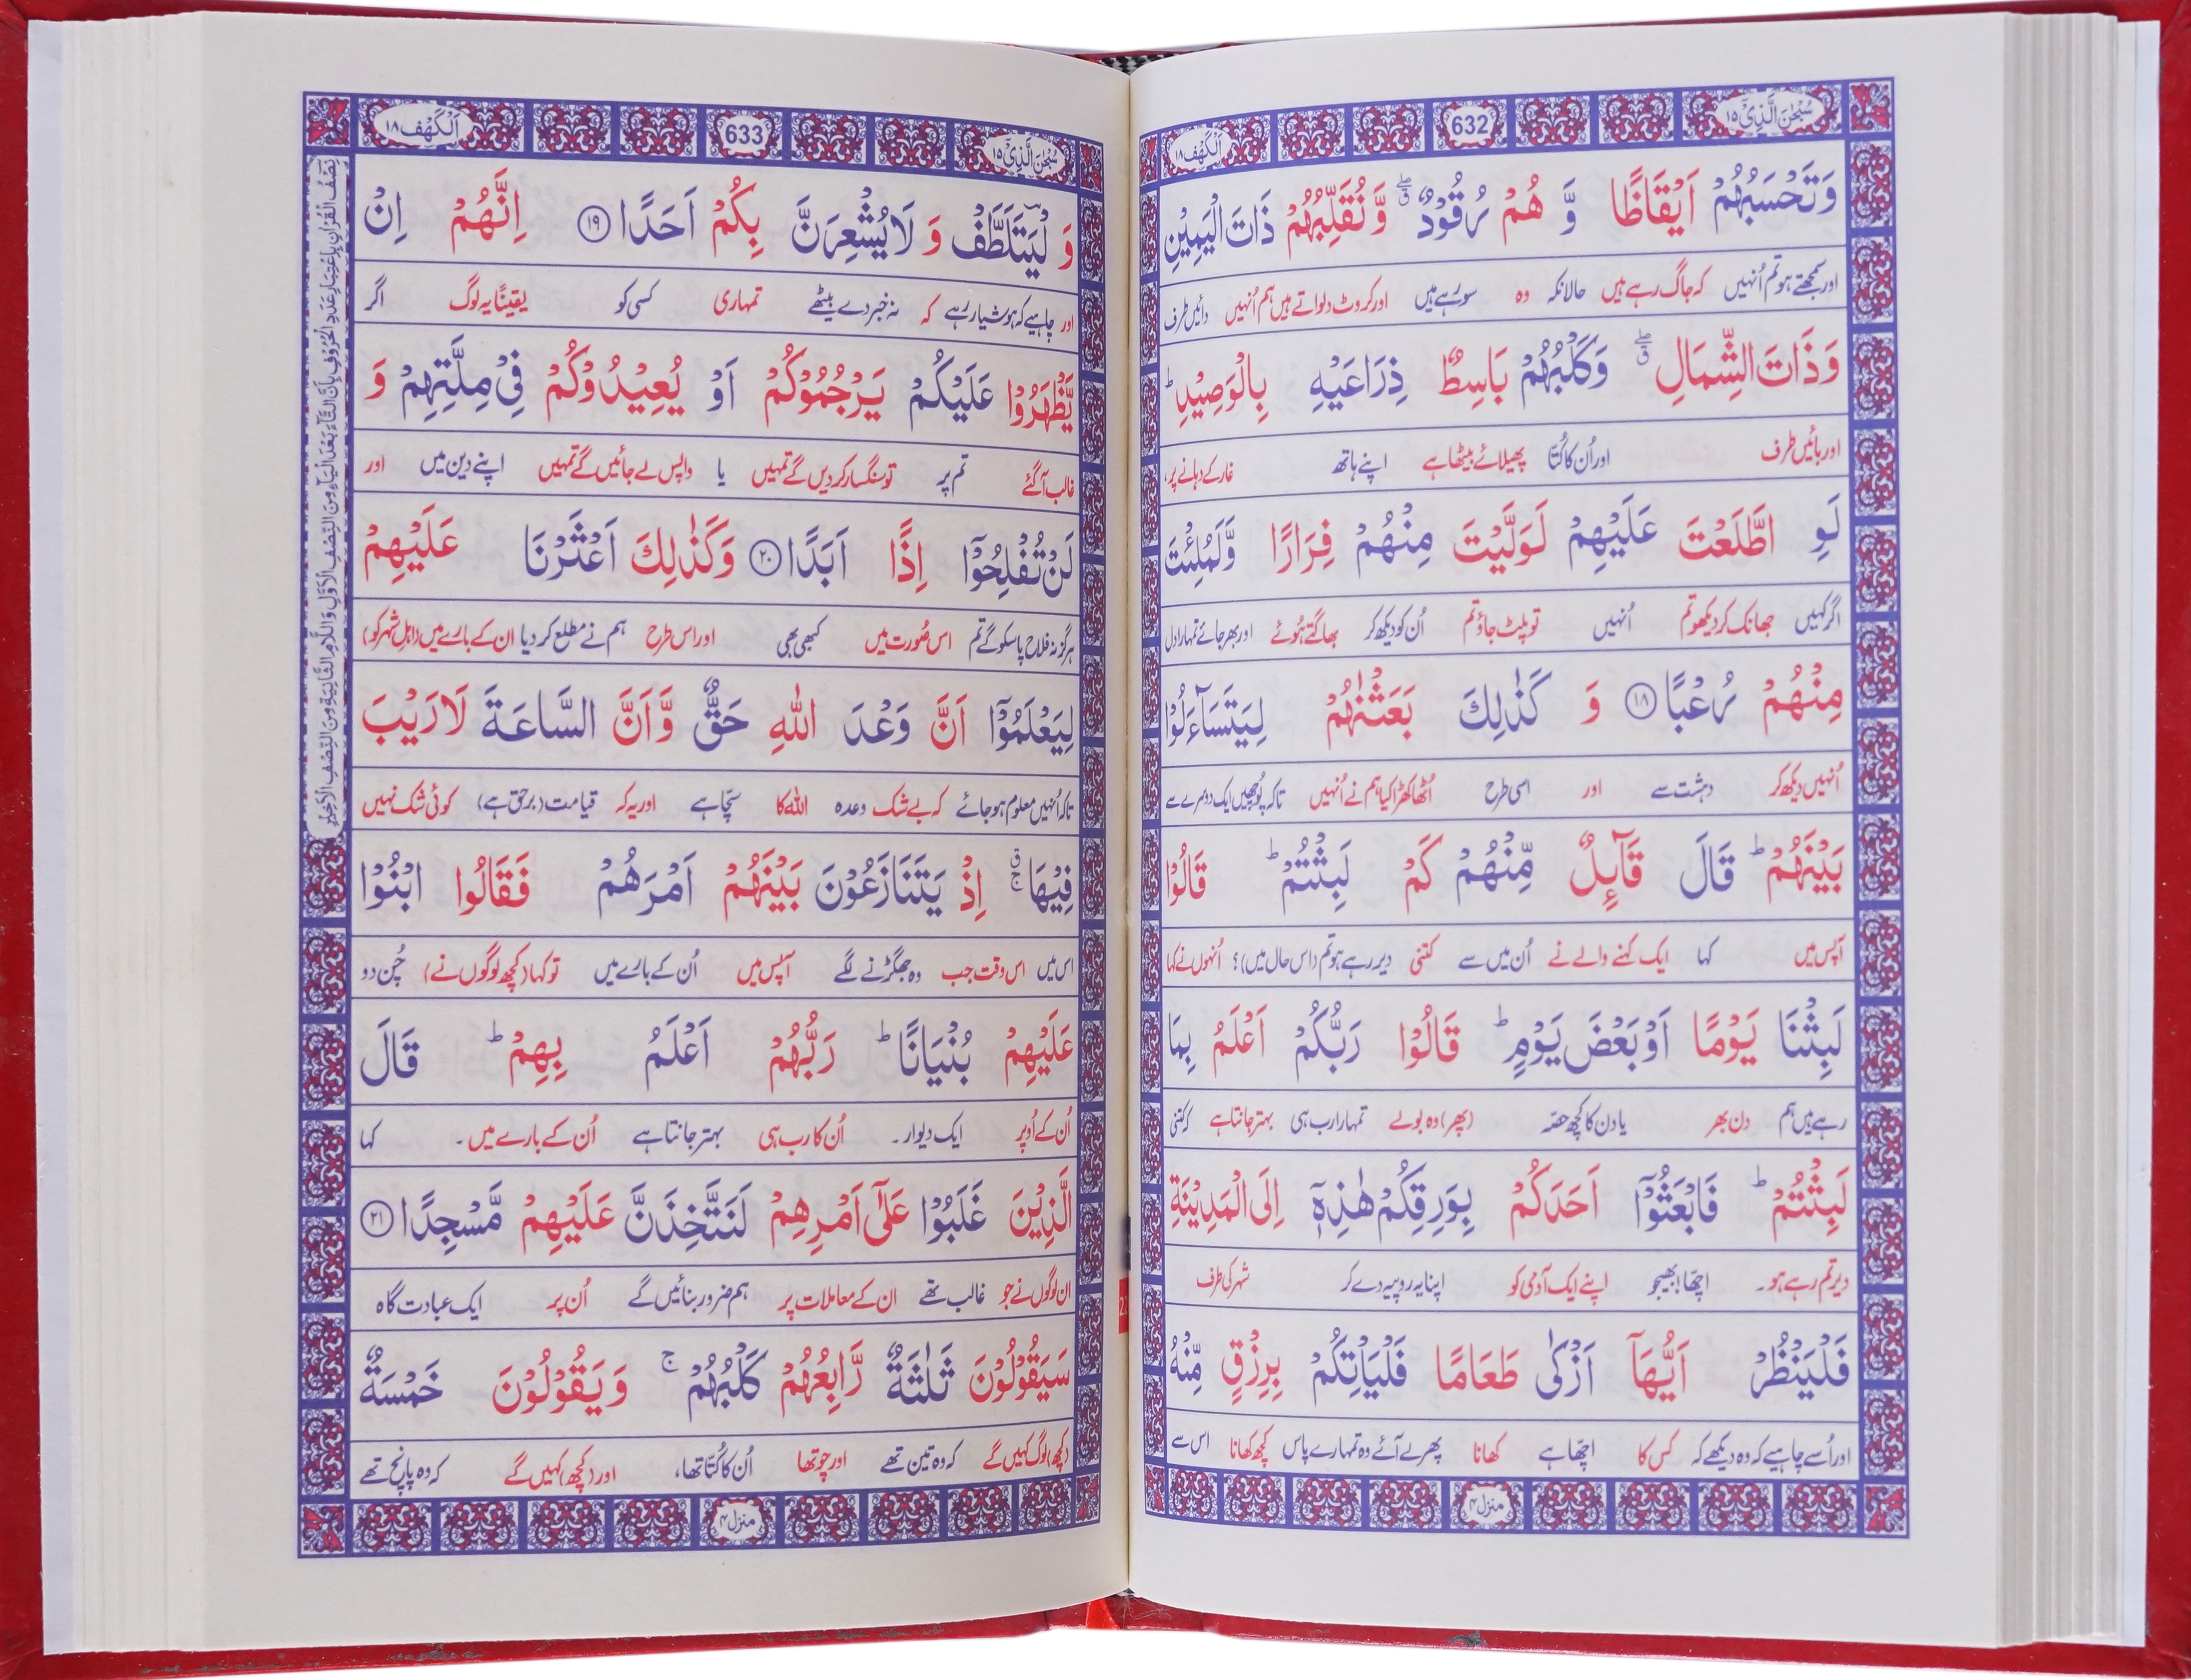 سُبْحٰنَ الَّذِیْۤ ۱۵
632
اَلْكَهْف ۱۸
وَتَحْسَبُهُمْ اَیْقَاظًا وَّ هُمْ رُقُوْدٌ ۖۗ وَّ نُقَلِّبُهُمْ ذَاتَ الْیَمِیْنِ
اور سمجھتے ہو تم اُنہیں کہ جاگ رہے ہیں حالانکہ وہ سو رہے ہیں اور کروٹ دلواتے ہیں ہم اُنہیں دائیں طرف
وَ ذَاتَ الشِّمَالِ ۖۗ وَكَلْبُهُمْ بَاسِطٌ ذِرَاعَیْهِ بِالْوَصِیْدِ ؕ
اور بائیں طرف اور اُن کا کُتّا پھیلائے بیٹھا ہے اپنے ہاتھ غار کے دہانے پر،
لَوِ اطَّلَعْتَ عَلَیْهِمْ لَوَلَّیْتَ مِنْهُمْ فِرَارًا وَّلَمُلِئْتَ
اگر کہیں جھانک کر دیکھو تم اُنہیں تو پلٹ جاؤ تم اُن کو دیکھ کر بھاگتے ہُوئے اور بھر جائے تمہارا دل
مِنْهُمْ رُعْبًا ۱۸ وَ كَذٰلِكَ بَعَثْنٰهُمْ لِیَتَسَآءَلُوْا
اُنہیں دیکھ کر دہشت سے اور اسی طرح اُٹھا کھڑا کیا ہم نے اُنہیں تاکہ پُوچھیں ایک دوسرے سے
بَیْنَهُمْ ؕ قَالَ قَآىِٕلٌ مِّنْهُمْ كَمْ لَبِثْتُمْ ؕ قَالُوْا
آپس میں کہا ایک کہنے والے نے اُن میں سے کتنی دیر رہے ہو تم (اس حال میں)؟ اُنہوں نے کہا
لَبِثْنَا یَوْمًا اَوْ بَعْضَ یَوْمٍ ؕ قَالُوْا رَبُّكُمْ اَعْلَمُ بِمَا
رہے ہیں ہم دن بھر یا دن کا کچھ حصّہ (پھر) وہ بولے تمہارا رب ہی بہتر جانتا ہے کہ کتنی
لَبِثْتُمْ ؕ فَابْعَثُوْۤا اَحَدَكُمْ بِوَرِقِكُمْ هٰذِهٖۤ اِلَى الْمَدِیْنَةِ
دیر تم رہے ہو۔ اچھا! بھیجو اپنے ایک آدمی کو اپنا یہ روپیہ دے کر شہر کی طرف
فَلْیَنْظُرْ اَیُّهَاۤ اَزْكٰى طَعَامًا فَلْیَاْتِكُمْ بِرِزْقٍ مِّنْهُ
اور اُسے چاہیے کہ وہ دیکھے کہ کس کا اچھا ہے کھانا پھر لے آئے وہ تمہارے پاس کچھ کھانا اس سے
منزل ۴
سُبْحٰنَ الَّذِیْۤ ۱۵
633
اَلْكَهْف ۱۸
وَ لْیَتَلَطَّفْ وَ لَا یُشْعِرَنَّ بِكُمْ اَحَدًا ۱۹ اِنَّهُمْ اِنْ
اور چاہیے کہ ہوشیار رہے کہ نہ خبر دے بیٹھے تمہاری کسی کو یقینًا یہ لوگ اگر
یَّظْهَرُوْا عَلَیْكُمْ یَرْجُمُوْكُمْ اَوْ یُعِیْدُوْكُمْ فِیْ مِلَّتِهِمْ وَ
غالب آ گئے تم پر تو سنگسار کر دیں گے تمہیں یا واپس لے جائیں گے تمہیں اپنے دین میں اور
لَنْ تُفْلِحُوْۤا اِذًا اَبَدًا ۲۰ وَكَذٰلِكَ اَعْثَرْنَا عَلَیْهِمْ
ہرگز نہ فلاح پا سکو گے تم اس صُورت میں کبھی بھی اور اس طرح ہم نے مطلع کر دیا ان کے بارے میں (اہلِ شہر کو)
لِیَعْلَمُوْۤا اَنَّ وَعْدَ اللّٰهِ حَقٌّ وَّ اَنَّ السَّاعَةَ لَا رَیْبَ
تاکہ اُنہیں معلوم ہو جائے کہ بے شک وعدہ اللہ کا سچّا ہے اور یہ کہ قیامت (برحق ہے) کوئی شک نہیں
فِیْهَا ۚۗ اِذْ یَتَنَازَعُوْنَ بَیْنَهُمْ اَمْرَهُمْ فَقَالُوا ابْنُوْا
اس میں اس وقت جب وہ جھگڑنے لگے آپس میں اُن کے بارے میں تو کہا (کچھ لوگوں نے) چُن دو
عَلَیْهِمْ بُنْیَانًا ؕ رَبُّهُمْ اَعْلَمُ بِهِمْ ؕ قَالَ
اُن کے اُوپر ایک دیوار۔ اُن کا رب ہی بہتر جانتا ہے اُن کے بارے میں۔ کہا
الَّذِیْنَ غَلَبُوْا عَلٰۤى اَمْرِهِمْ لَنَتَّخِذَنَّ عَلَیْهِمْ مَّسْجِدًا ۲۱
ان لوگوں نے جو غالب تھے ان کے معاملات پر ہم ضرور بنائیں گے اُن پر ایک عبادت گاہ
سَیَقُوْلُوْنَ ثَلٰثَةٌ رَّابِعُهُمْ كَلْبُهُمْ ۚ وَیَقُوْلُوْنَ خَمْسَةٌ
(کچھ) لوگ کہیں گے کہ وہ تین تھے اور چوتھا اُن کا کُتّا تھا، اور (کچھ) کہیں گے کہ وہ پانچ تھے
نِصْفُ الْقُرْاٰنِ بِاِعْتِبَارِ عَدَدِ الْحُرُوْفِ بِاَنَّ التَّآءَ بَعْدَ الْیَآءِ مِنَ النِّصْفِ الْاَوَّلِ وَاللَّامِ الثَّانِیَةِ مِنَ النِّصْفِ الْاَخِیْرِ
منزل ۴